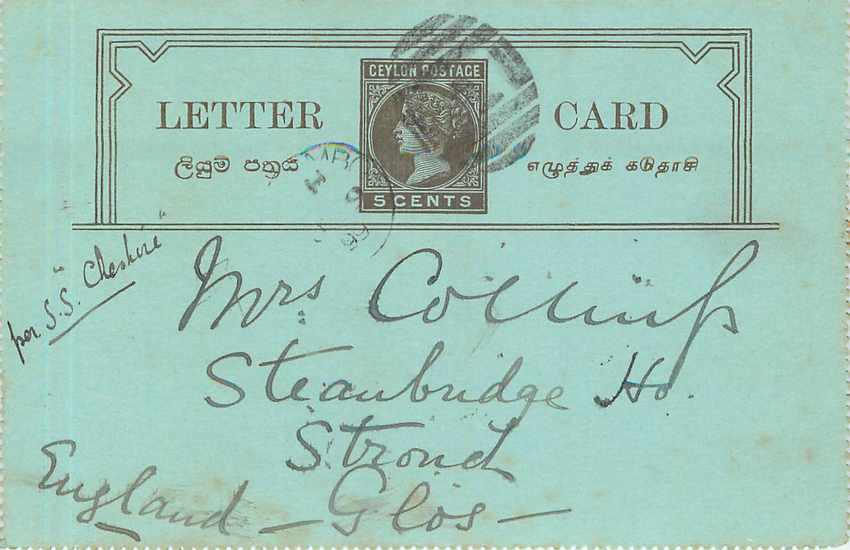 CEYLON POSTAGE
LETTER CARD
ලියුම් පත්‍රය எழுத்துக் கடுதாசி
5 CENTS
per S.S. "Cheshire"
Mrs Collins
Steanbridge Ho.
Stroud
England – Glos –